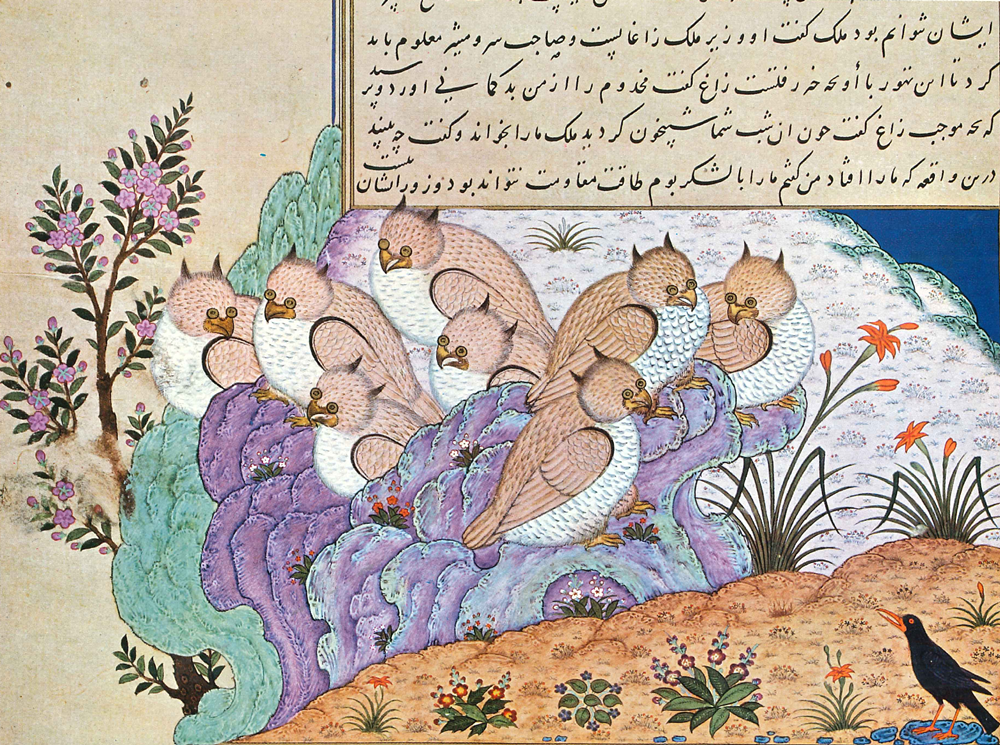 ایشان توانم بود ملک گفت او وزیر ملک زاغانست و صاحب سر و مشیر معلوم باید
کرد تا این تهور با او بچه رفتست زاغ گفت مخدوم را از من بدگمانی اورد و پرسید
که بچه موجب زاغ گفت چون ان شب شما شبیخون کردید ملک ما را بخواند و گفت چه بینید
درین واقعه که ما را افتاد من گفتم ما را با لشکر بوم طاقت مقاومت نتواند بود و زور ایشان